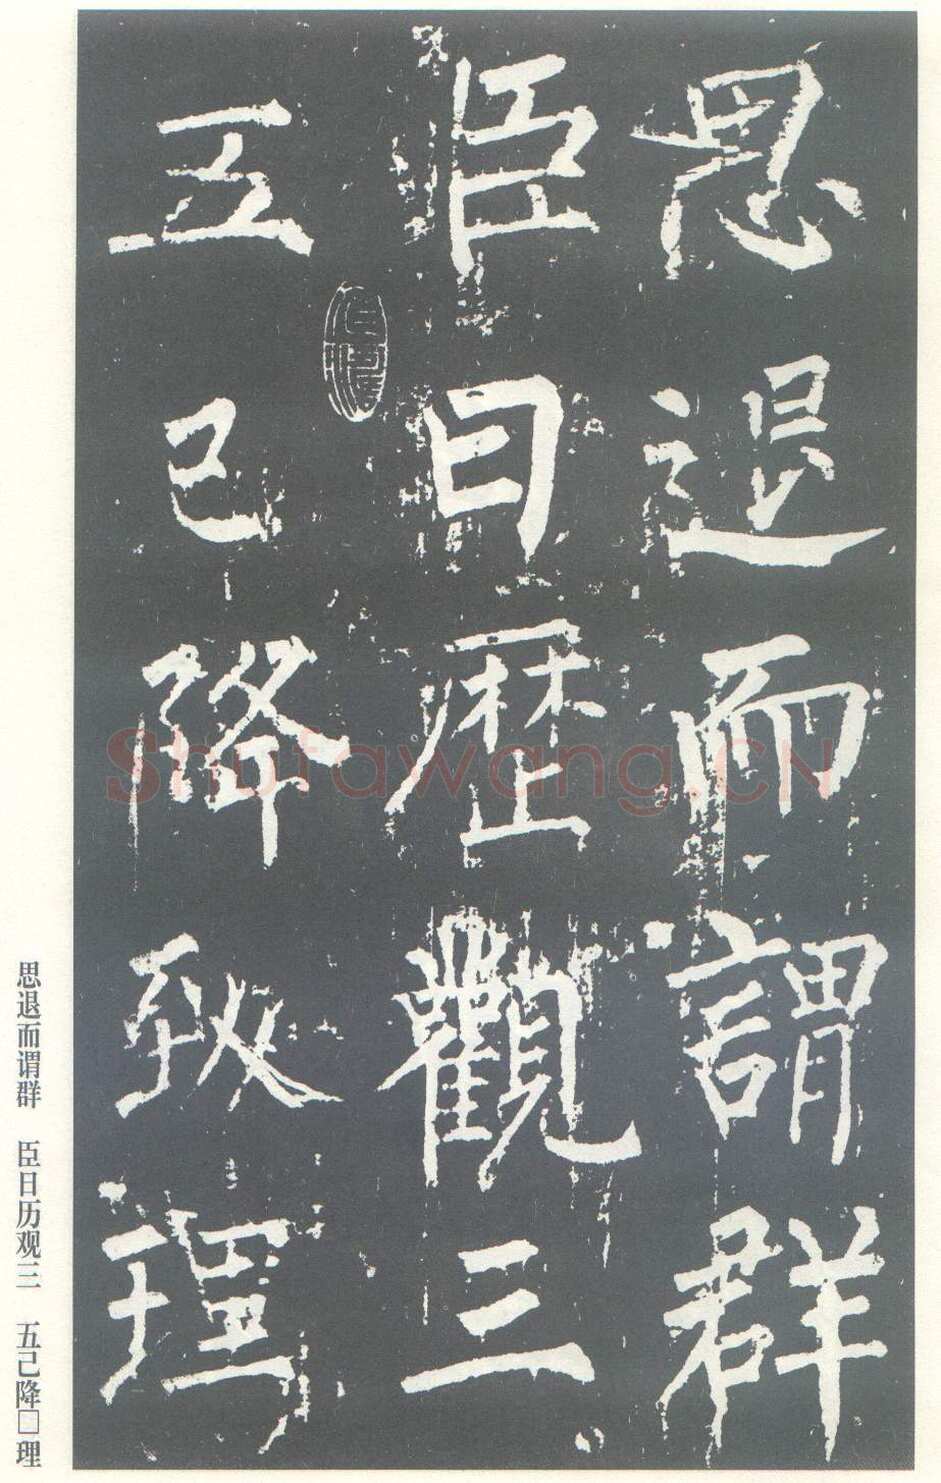 思退而謂群
臣曰歷觀三
五已降致理
思退而谓群 臣日历观三 五己降□理
Shufawang.CN